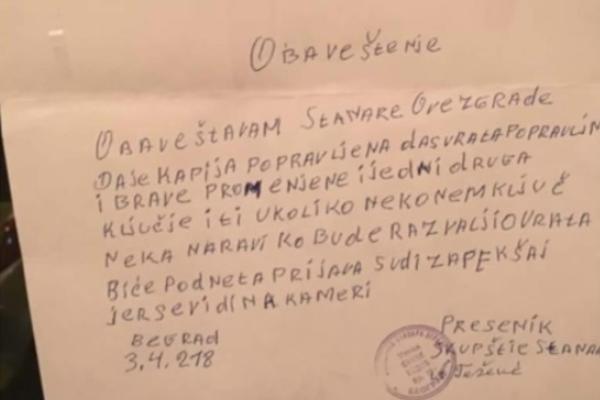 OBAVEŠTENJE
OBAVEŠTAVAM STANARE OVE ZGRADE
DAJE KAPIJA POPRAVLJENA DASVRATA POPRAVLJN
I BRAVE PROMENJENE I JEDNI DRUGA
KLJUČJE ITI UKOLIKO NEKO NEM KLJUČ
NEKA NARAVI KO BUDE RAZVALJIO VRATA
BIĆE PODNETA PRIJAVA SUDI ZAPEKŠAJ
JERSE VIDI NA KAMERI
BEGRAD
3.4.218
PRESENIK
SKUPŠTIE STANA